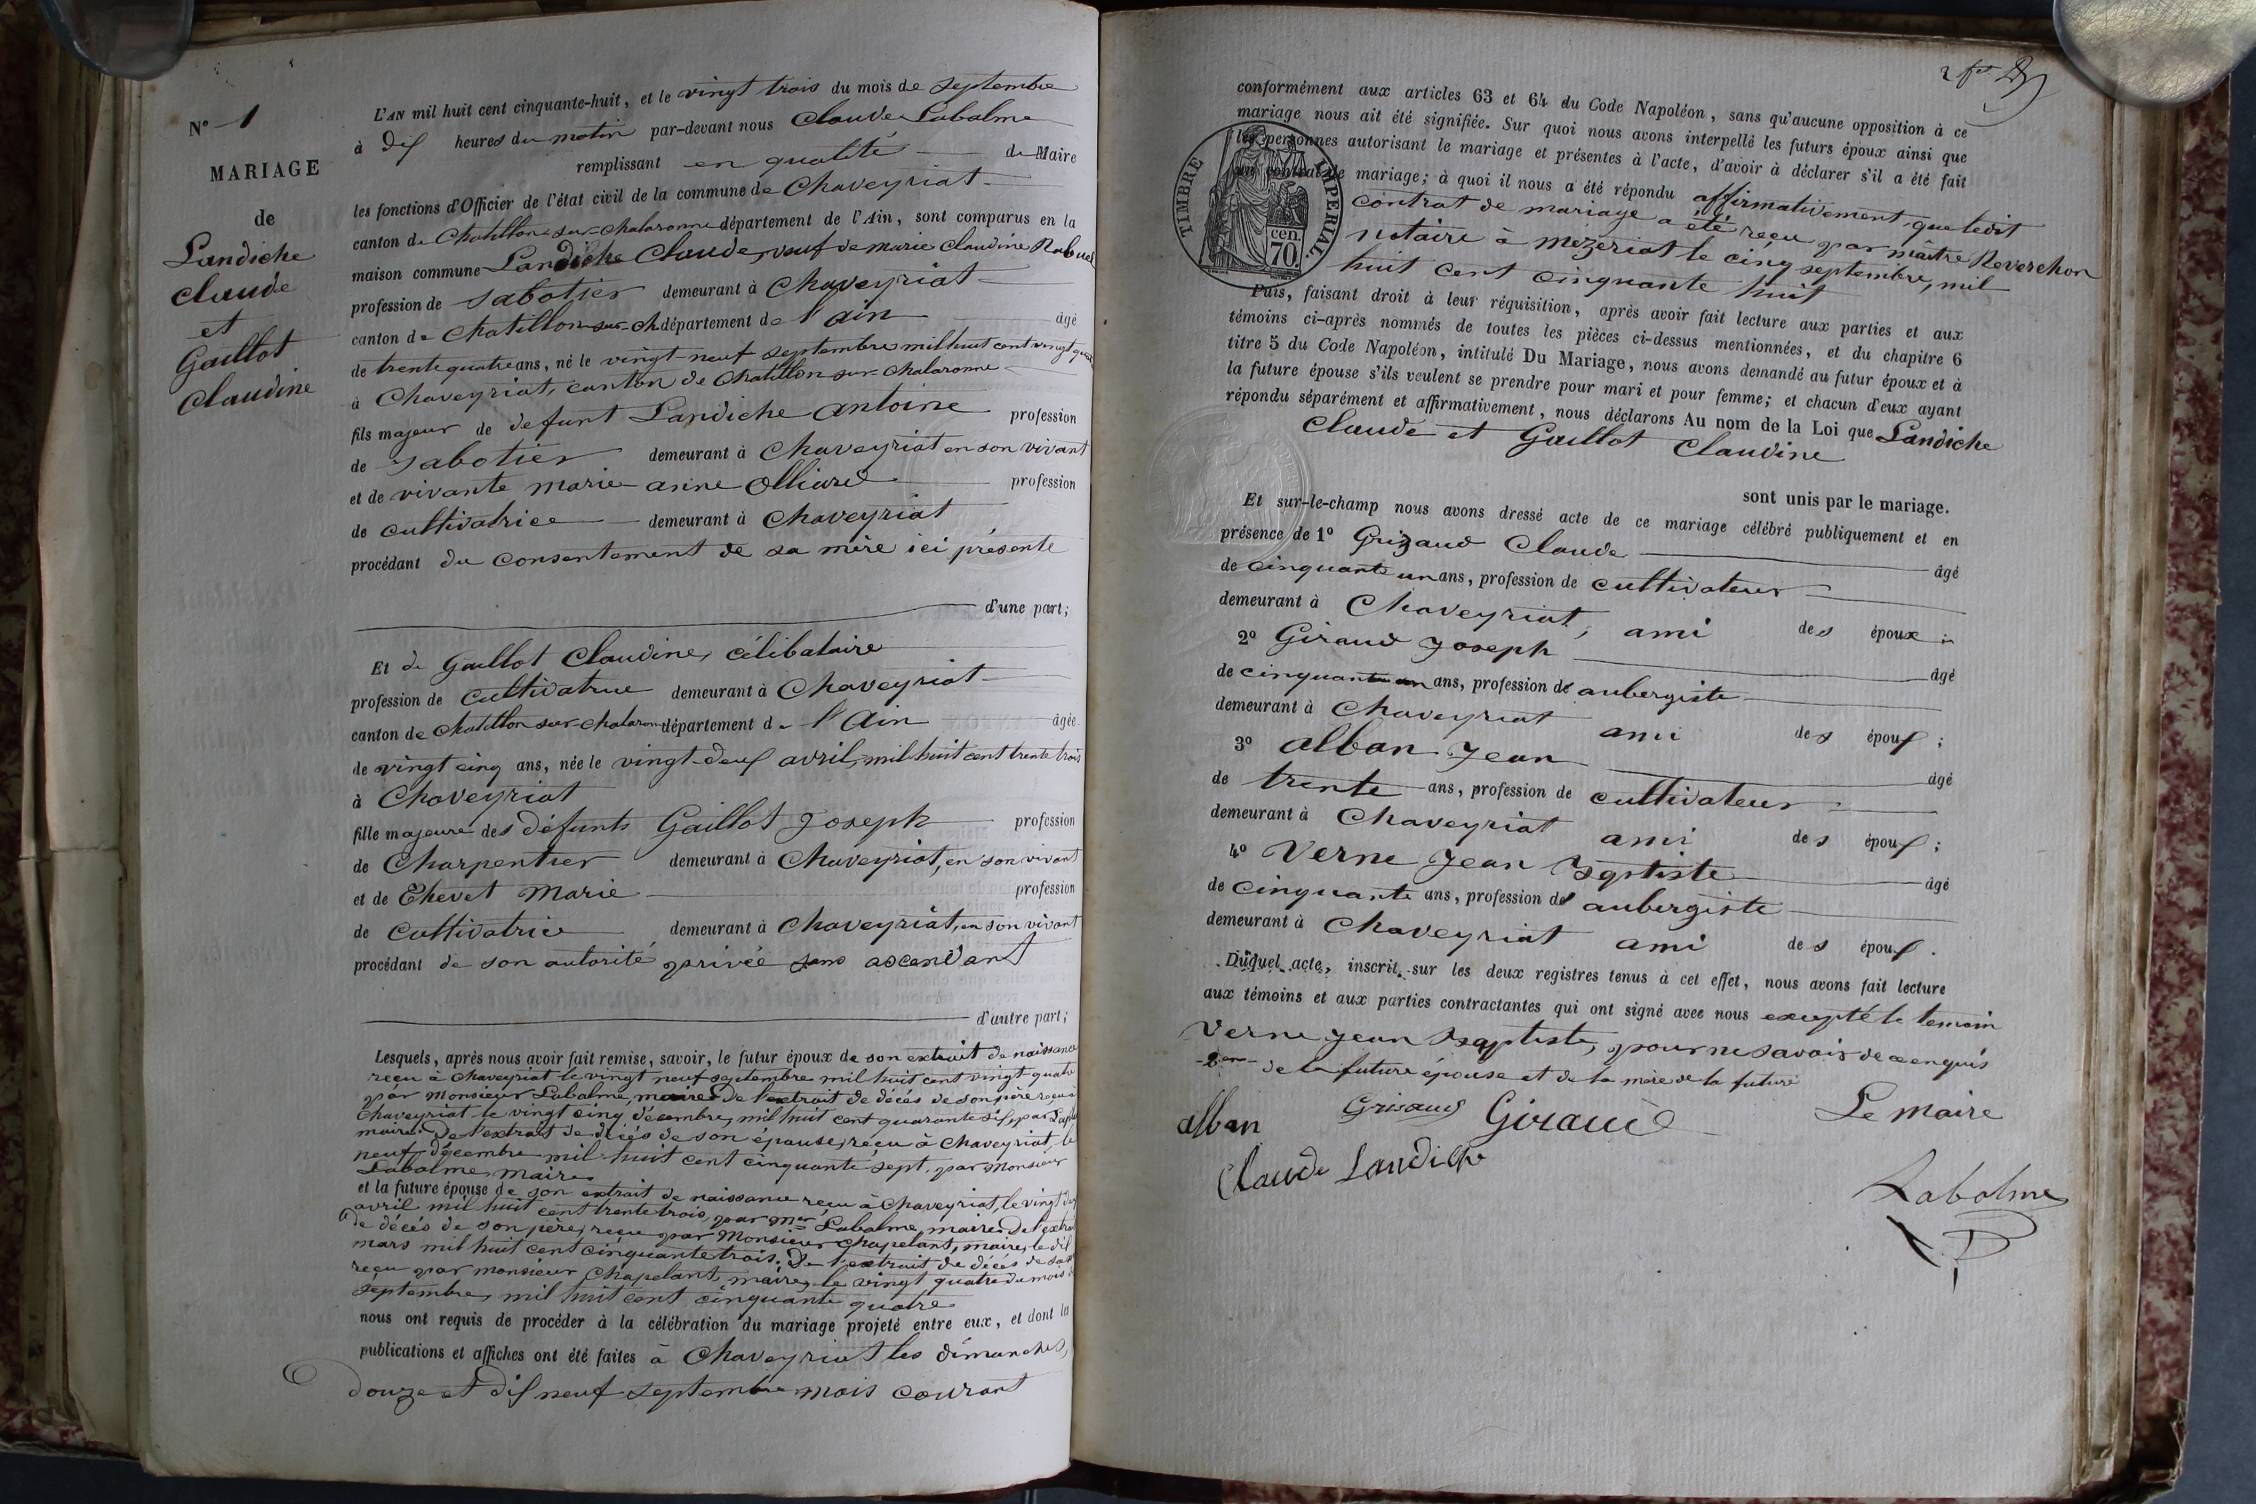 N° 1
MARIAGE
de
Landiche
Claude
et
Gaillot
Claudine
L'AN mil huit cent cinquante-huit, et le vingt trois du mois de septembre
à dix heures du matin par-devant nous Claude Labalme
remplissant en qualité de Maire
les fonctions d'Officier de l'état civil de la commune de Chaveyriat
canton de Chatillon sur chalaronne département de l'Ain, sont comparus en la
maison commune Landiche Claude, veuf de marie Claudine Rabuel
profession de sabotier demeurant à Chaveyriat
canton de Chatillon sur ch département de l'ain âgé
de trente quatre ans, né le vingt neuf septembre mil huit cent vingt
à Chaveyriat, canton de Chatillon sur Chalaronne
fils majeur de defunt Landiche antoine profession
de sabotier demeurant à Chaveyriat en son vivant
et de vivante marie anne Olliard profession
de cultivatrice demeurant à Chaveyriat
procédant du consentement de sa mère ici présente
d'une part;
Et de Gaillot Claudine, célibataire
profession de cultivatrice demeurant à Chaveyriat
canton de Chatillon sur chalaronne département de l'Ain âgée
de vingt cinq ans, née le vingt-deux avril, mil huit cent trente trois
à Chaveyriat
fille majeure des défunts Gaillot Joseph profession
de Charpentier demeurant à Chaveyriat, en son vivant
et de Chevet Marie profession
de cultivatrice demeurant à Chaveyriat, en son vivant
procédant de son autorité privée sans ascendant
d'autre part;
Lesquels, après nous avoir fait remise, savoir, le futur époux de son extrait de naissance
reçu à Chaveyriat le vingt neuf septembre mil huit cent vingt quatre
par Monsieur Labalme, maire. De l'extrait de décès de son père reçu à
Chaveyriat le vingt cinq décembre, mil huit cent quarante six, par
maire. De l'extrait de décès de son épouse, reçu à Chaveyriat, le
neuf décembre mil huit cent cinquante sept, par Monsieur
Labalme, maire
et la future épouse de son extrait de naissance reçu à Chaveyriat, le vingt deux
avril mil huit cent trente trois, par Mer Labalme, maire. De l'extrait
de décès de son père, reçu par Monsieur Chapelant, maire, le dix
mars mil huit cent cinquante trois. De l'extrait de décès de sa
reçu par monsieur Chapelant, maire, le vingt quatre du mois de
septembre, mil huit cent cinquante quatre
nous ont requis de procéder à la célébration du mariage projeté entre eux, et dont les
publications et affiches ont été faites à Chaveyriat les dimanches,
douze et dix neuf septembre mois courant
conformément aux articles 63 et 64 du Code Napoléon, sans qu'aucune opposition à ce
mariage nous ait été signifiée. Sur quoi nous avons interpellé les futurs époux ainsi que
les personnes autorisant le mariage et présentes à l'acte, d'avoir à déclarer s'il a été fait
un contrat de mariage; à quoi il nous a été répondu affirmativement que ledit
contrat de mariage a été reçu par maître Reverchon
notaire à Mézériat le cinq septembre, mil
huit cent cinquante huit
TIMBRE IMPERIAL
70 cen.
Puis, faisant droit à leur réquisition, après avoir fait lecture aux parties et aux
témoins ci-après nommés de toutes les pièces ci-dessus mentionnées, et du chapitre 6
titre 5 du Code Napoléon, intitulé Du Mariage, nous avons demandé au futur époux et à
la future épouse s'ils veulent se prendre pour mari et pour femme; et chacun d'eux ayant
répondu séparément et affirmativement, nous déclarons Au nom de la Loi que Landiche
Claude et Gaillot Claudine
sont unis par le mariage.
Et sur-le-champ nous avons dressé acte de ce mariage célébré publiquement et en
présence de 1° Grizaud Claude âgé
de cinquante un ans, profession de cultivateur
demeurant à Chaveyriat, ami des époux;
2° Giraud Joseph âgé
de cinquante un ans, profession de aubergiste
demeurant à Chaveyriat ami des époux;
3° alban Jean âgé
de trente ans, profession de cultivateur
demeurant à Chaveyriat ami des époux;
4° Verne Jean Baptiste âgé
de cinquante ans, profession de aubergiste
demeurant à Chaveyriat ami des époux.
Duquel acte, inscrit sur les deux registres tenus à cet effet, nous avons fait lecture
aux témoins et aux parties contractantes qui ont signé avec nous excepté le temoin
Verne Jean Baptiste, pour ne savoir de ce enquis
de la future épouse et de la mère de la future
alban Grisaud Giraud Le Maire
Claude Landiche
Labalme